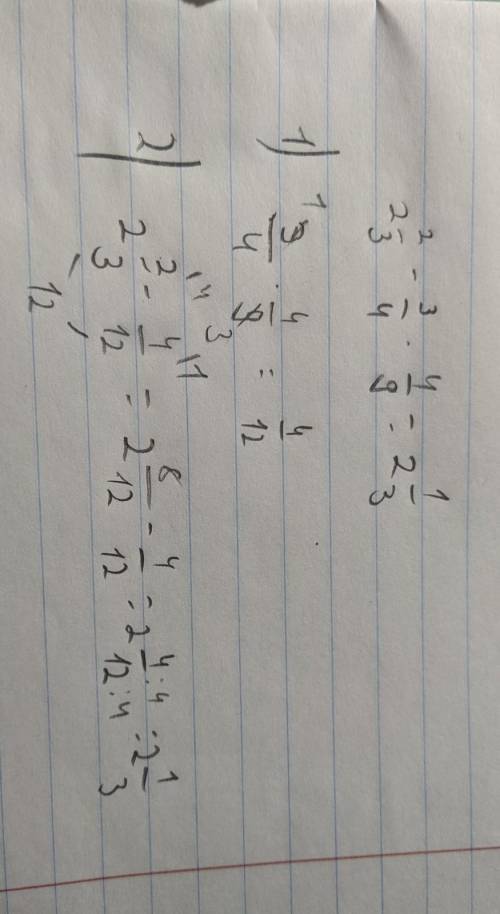 2 2/3 - 3/4 · 4/9 = 2 1/3
1) 3/4 · 4/9 = 4/12
1 3
2) 2 2/3 - 4/12 = 2 8/12 - 4/12 = 2 4:4/12:4 = 2 1/3
12